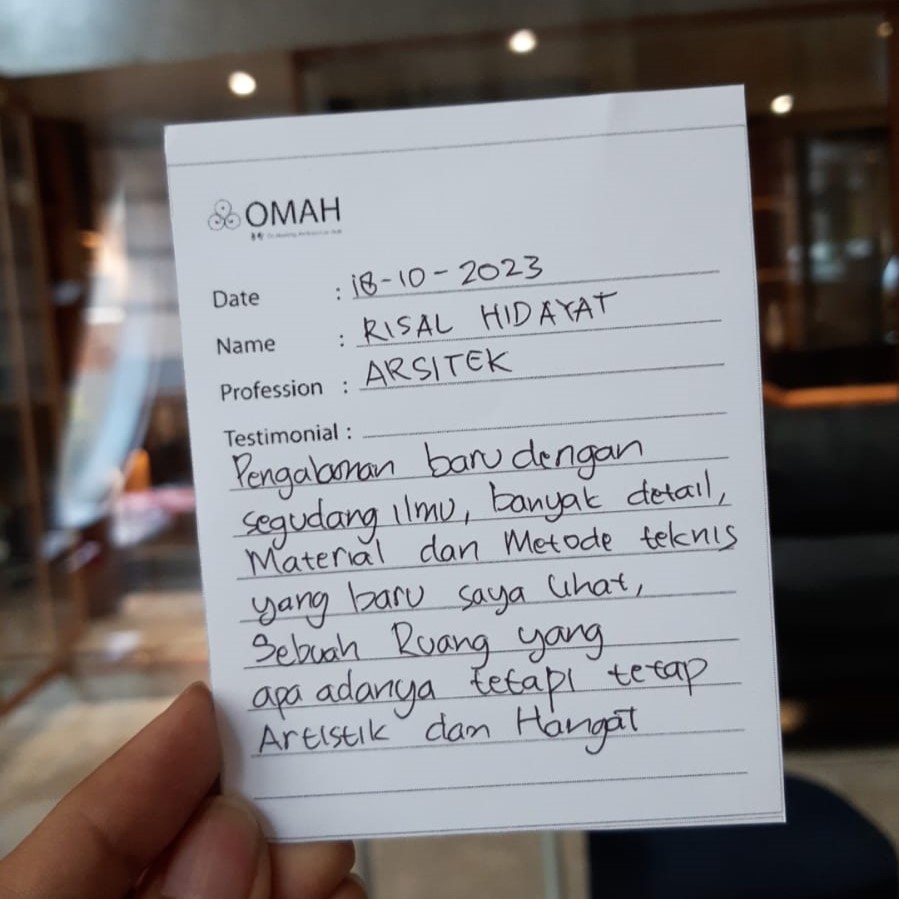 OMAH
Date : 18-10-2023
Name : RISAL HIDAYAT
Profession : ARSITEK
Testimonial :
Pengalaman baru dengan
segudang ilmu, banyak detail,
Material dan Metode teknis
yang baru saya lihat,
Sebuah Ruang yang
apa adanya tetapi tetap
Artistik dan Hangat